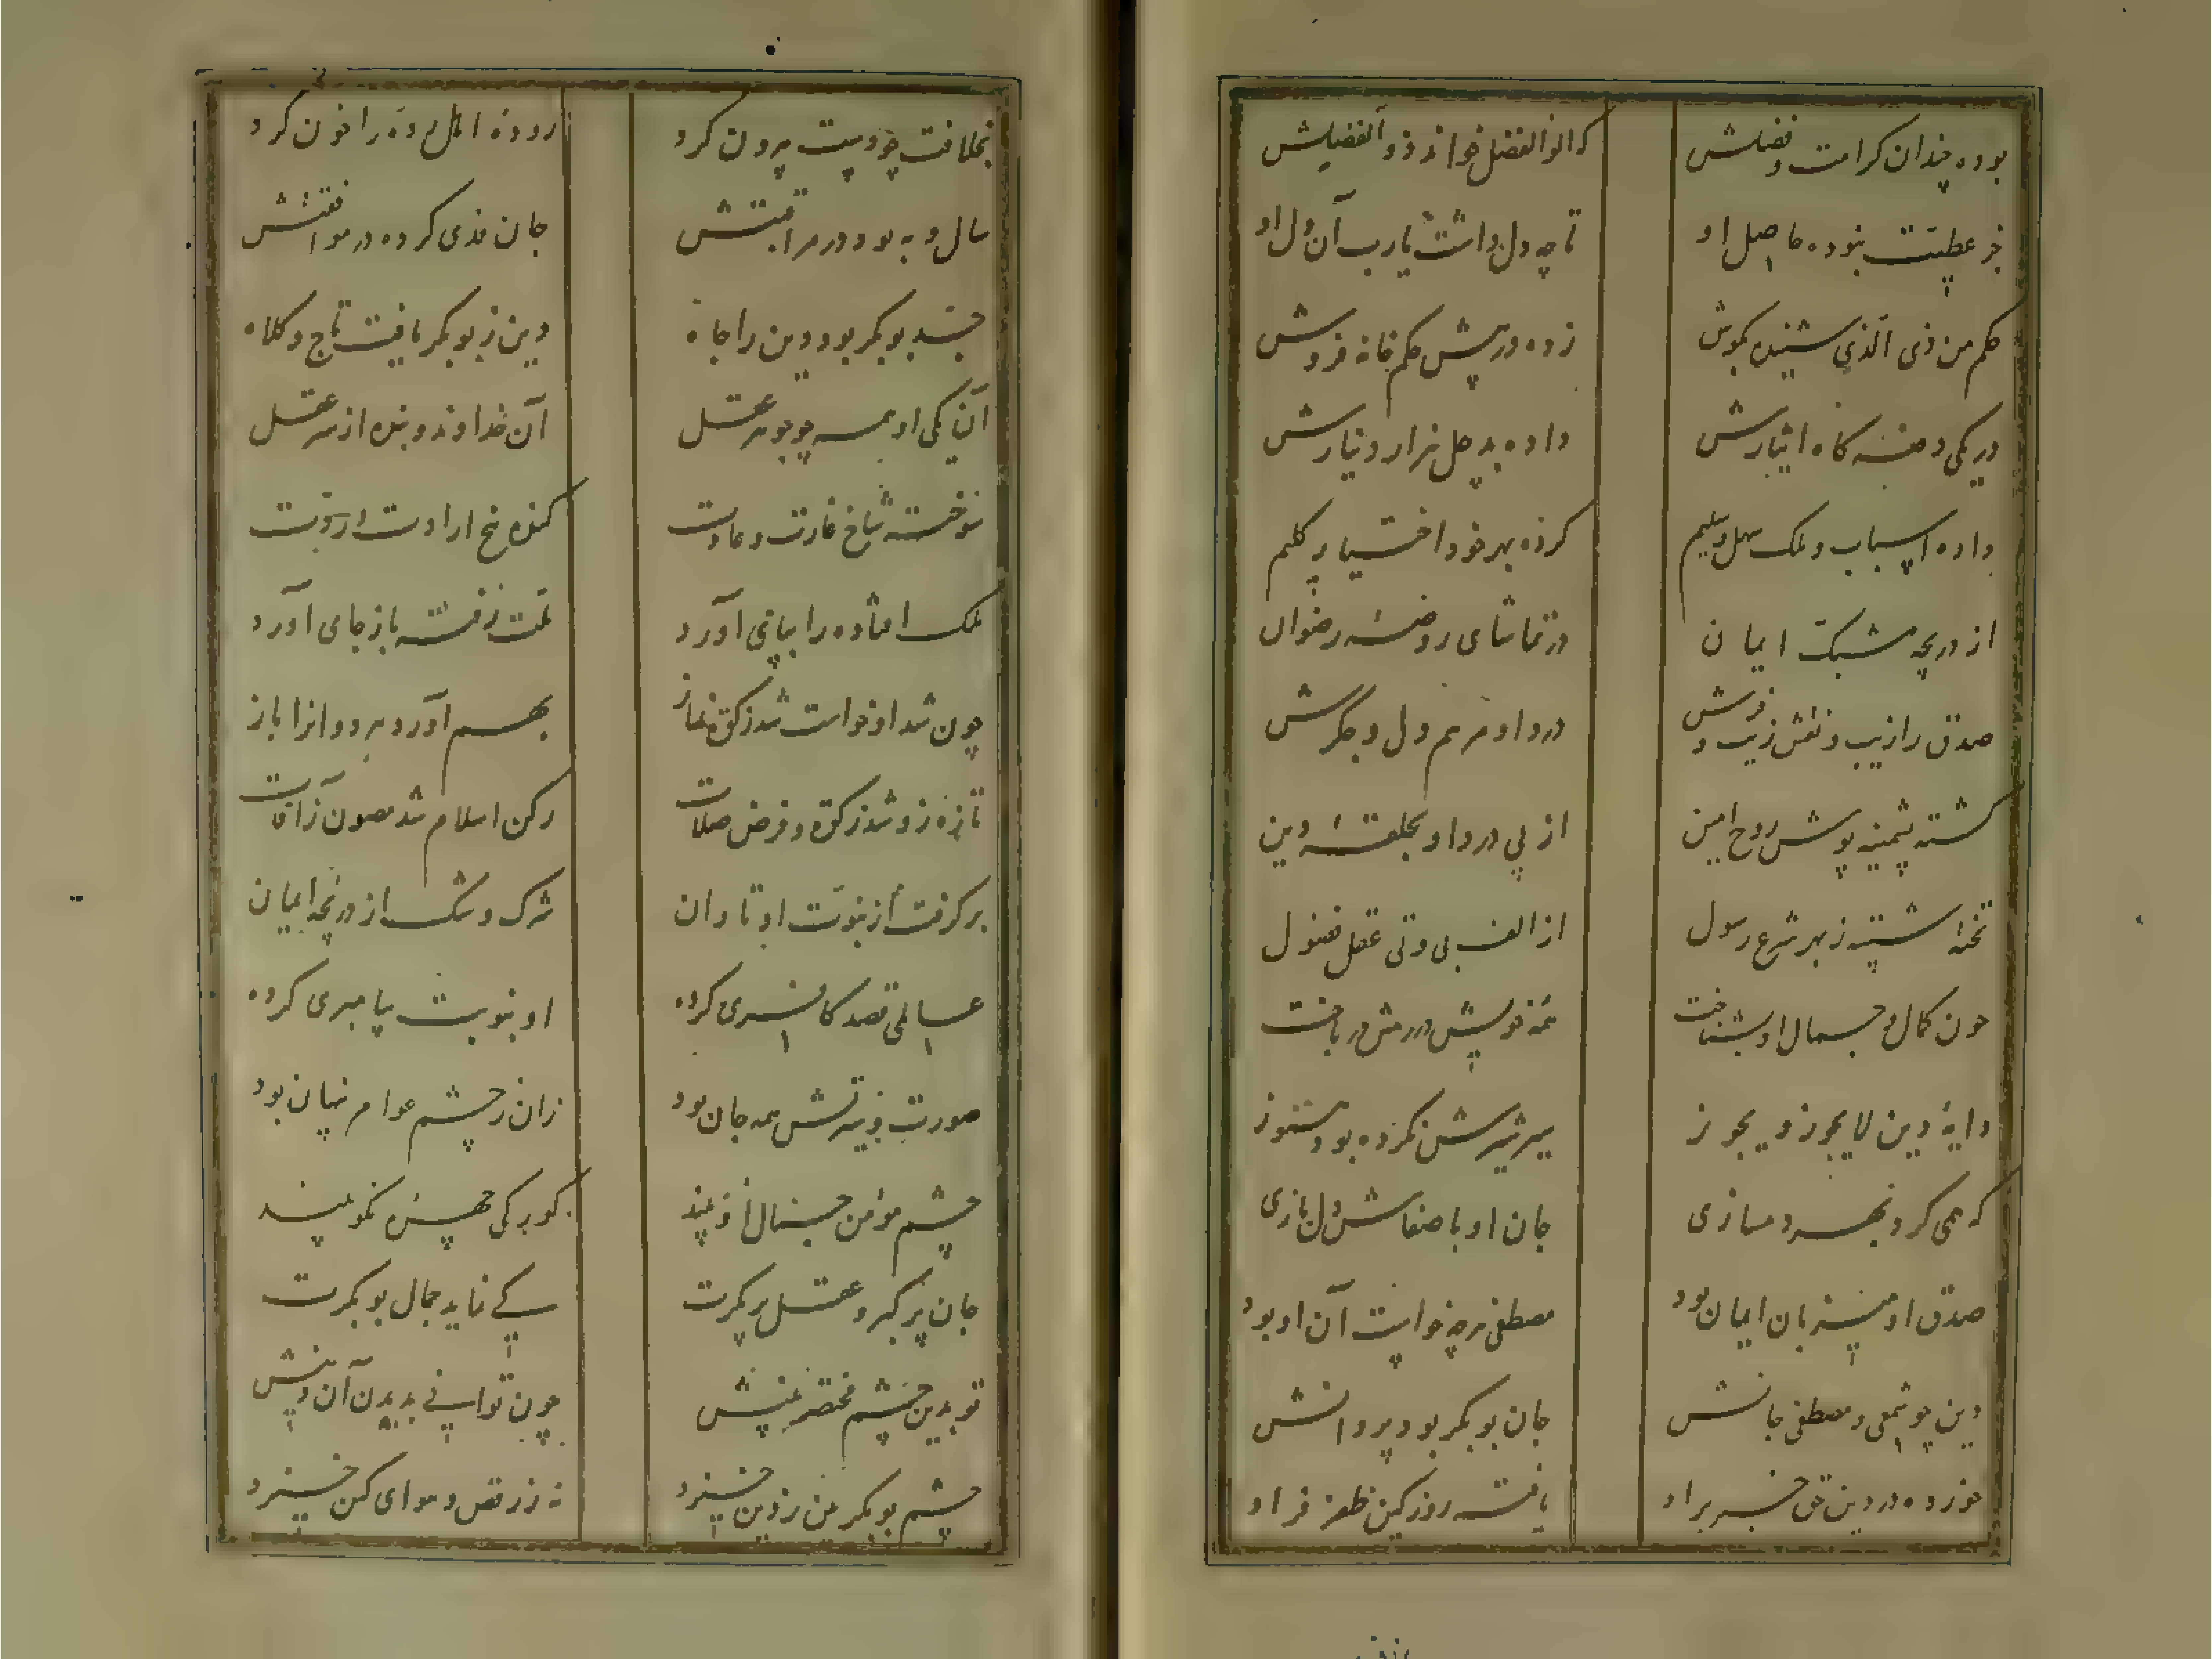 بوده چندان کرامت و فضلش
که اولوالفضل خواند ذوالفضلش
جز عطیت نبوده حاصل او
تا چه دل داشت یارب آن دل او
حکم من ذی الذی شنیده بگوش
زده در پیش حکم خانه فروش
در یکی دفعه گاه ایثارش
داده بد چل هزار دینارش
داده اسباب و ملک سهل و سلیم
کرده بهر خود اختیار گلیم
از دریچه مشبک ایمان
در تماشای روضه رضوان
صدق را زیب و نقش زیب و فرش
درد او مرهم دل و جگرش
گشته پشمینه پوش روح امین
از پی درد او بحلقه دین
تخته شسته ز بهر شرع رسول
از الف بی و تی عقل فضول
چون کمال و جمال او بشناخت
همه خویش در رهش در باخت
دایهٔ دین لا یجوز و یجوز
سیر شیرش نکرده بود هنوز
که همی کرد بهر دمسازی
جان او با صفاش دل بازی
صدق او میزبان ایمان بود
مصطفی هرچه خواست آن او بود
دین چو شمعی و مصطفی جانش
جان بوبکر بود پروانش
خورده در دین حق
یافته روز کین ظفر فر او
بخلافت چو دست بیرون کرد
روده اهل رده را خون کرد
سال و مه بود در مراقبتش
جان فدی کرده در موافقتش
بوبکر بود دین را جاه
دین ز بوبکر یافت تاج و کلاه
آن یکی او همه چو جوهر عقل
آن خداوند و بنده از سر عقل
سوخته شاخ غارت و عادت
کنده بیخ ارادت و ردت
ملک افتاده را بپای آورد
ملت رفته باز جای آورد
چون شد او خواست شد زکوة نماز
بهم آورد هر دو انرا باز
تازه زو شد زکوة و فرض صلات
رکن اسلام شد مصون ز آفات
برگرفت از نبوت او تاوان
شرک و شک از دریچه ایمان
عالمی قصد کافری کرده
او بنوبت پیامبری کرده
صورت و سیرتش همه جان بود
زان ز چشم عوام پنهان بود
چشم مؤمن جمال او بیند
کور کی چهره نکو بیند
جان پر کبر و عقل پر مکرت
کی نماید جمال بوبکرت
تو بدین چشم مختصر بینش
چون توانی بدیدن آن دینش
چشم بوبکر بین ز دین خیزد
نه ز رفض و هوای کین خیزد